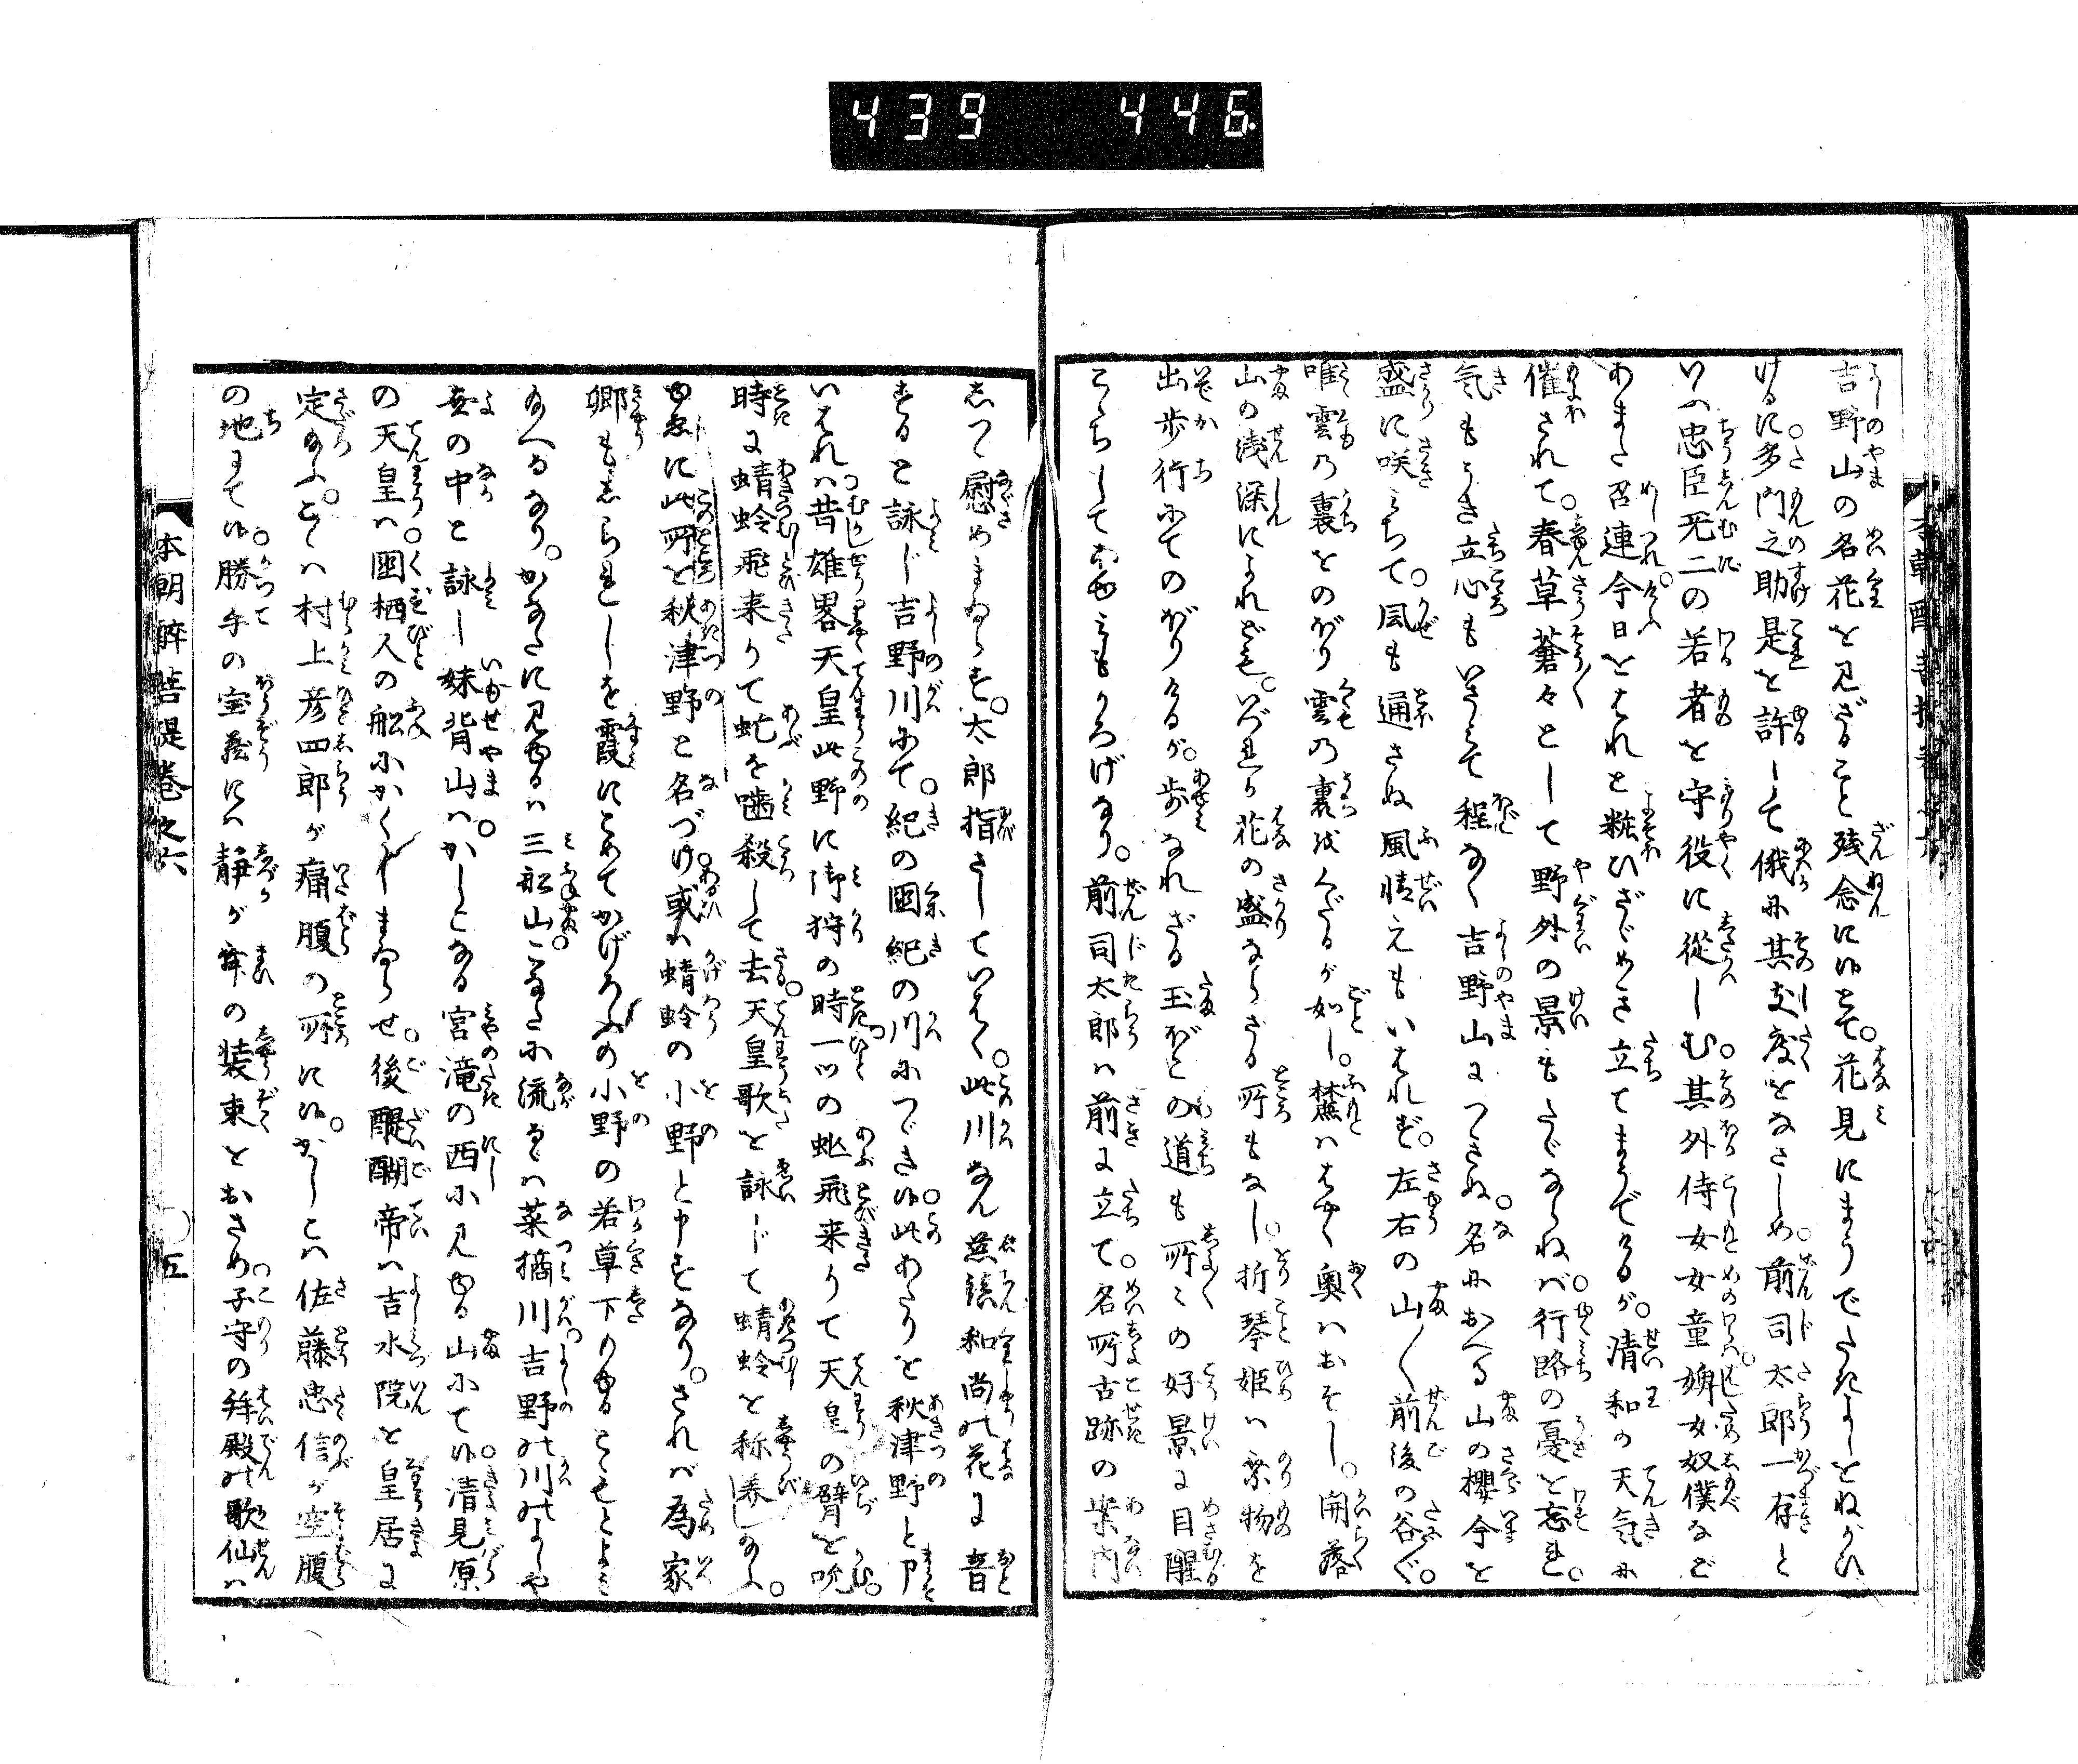 439 446
吉野山の名花を見ざること残念に候とて。花見にまうでたきよしをねがひ
けるに。多門之助是を許して俄に其支度をなさしめ。前司太郎一存と
いへ忠臣无二の若者を守役に従しむ。其外侍女女童婢女奴僕など
あまた召連。今日をはれと粧ひざゞめき立てまうでけるが。清和の天気に
催されて。春草蒼々として野外の景もたゞならねバ。行路の憂を忘れ。
気もうき立心もいさみて程なく吉野山につきぬ。名におへる山の櫻今を
盛に咲みちて。風も通さぬ風情えもいはれず。左右の山〳〵前後の谷〳〵。
唯雲の裏をのぼり雲の裏をくだるが如し。麓ハはやく奥ハおそし。開落
山の浅深によれども。いづれか花の盛ならざる所もなし。折琴姫ハ乗物を
出歩行にてのぼりけるが。歩なれざる玉ぼこの道も所々の好景に目醒
こゝちしてわか〻もかろげなり。前司太郎ハ前に立て。名所古跡の案内
しつゝ慰めまゐらす。太郎指さしていはく。此川なん無鉄和尚の花に音
すると詠じ吉野川にて。紀の國紀の川につゞき候。此あたりを秋津野と申
いはれハ昔雄畧天皇此野に御狩の時一ツの虻飛来りて天皇の臂を吮。
時に蜻蛉飛来りて虻を噛殺して去。天皇歌を詠じて蜻蛉を称美し玉ふ。
ゆゑに此所を秋津野と名づけ。或ハ蜻蛉の小野と申すなり。されバ為家
卿もしられじを霞にこめてかげろふの小野の若草下もゆるともとよみ
玉へるなり。かなたに見ゆるハ三船山。こなたに流るゝハ菜摘川吉野の川のよしや
世の中と詠し妹背山ハ。かしこなる宮滝の西に見ゆる山にて候。清見原
の天皇ハ。國栖人の舩にかくしまゐらせ。後醍醐帝ハ吉水院を皇居に
定玉ふ。こゝハ村上彦四郎が痛腹の所に候。かしこハ佐藤忠信が空腹
の地にて候。勝手の宝蔵にハ静が舞の装束をおさめ。子守の拜殿の歌仙ハ
本朝醉菩提巻之六
五